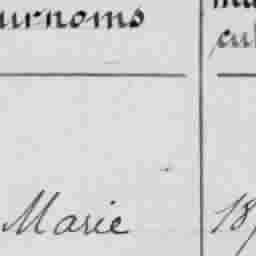 urnoms
cul
Marie 18